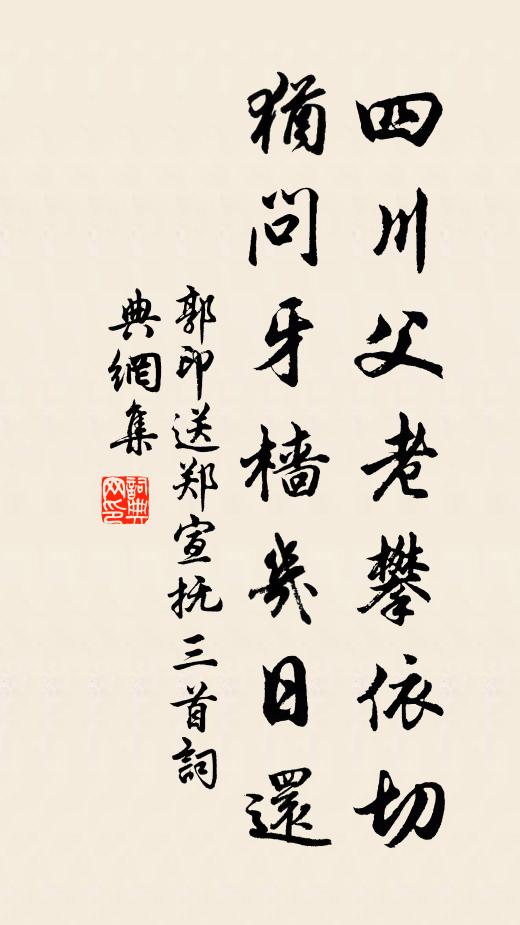 四川父老攀依切
猶問牙檣幾日還
郭印送郑宣抚三首詞
典網集
詞典网印